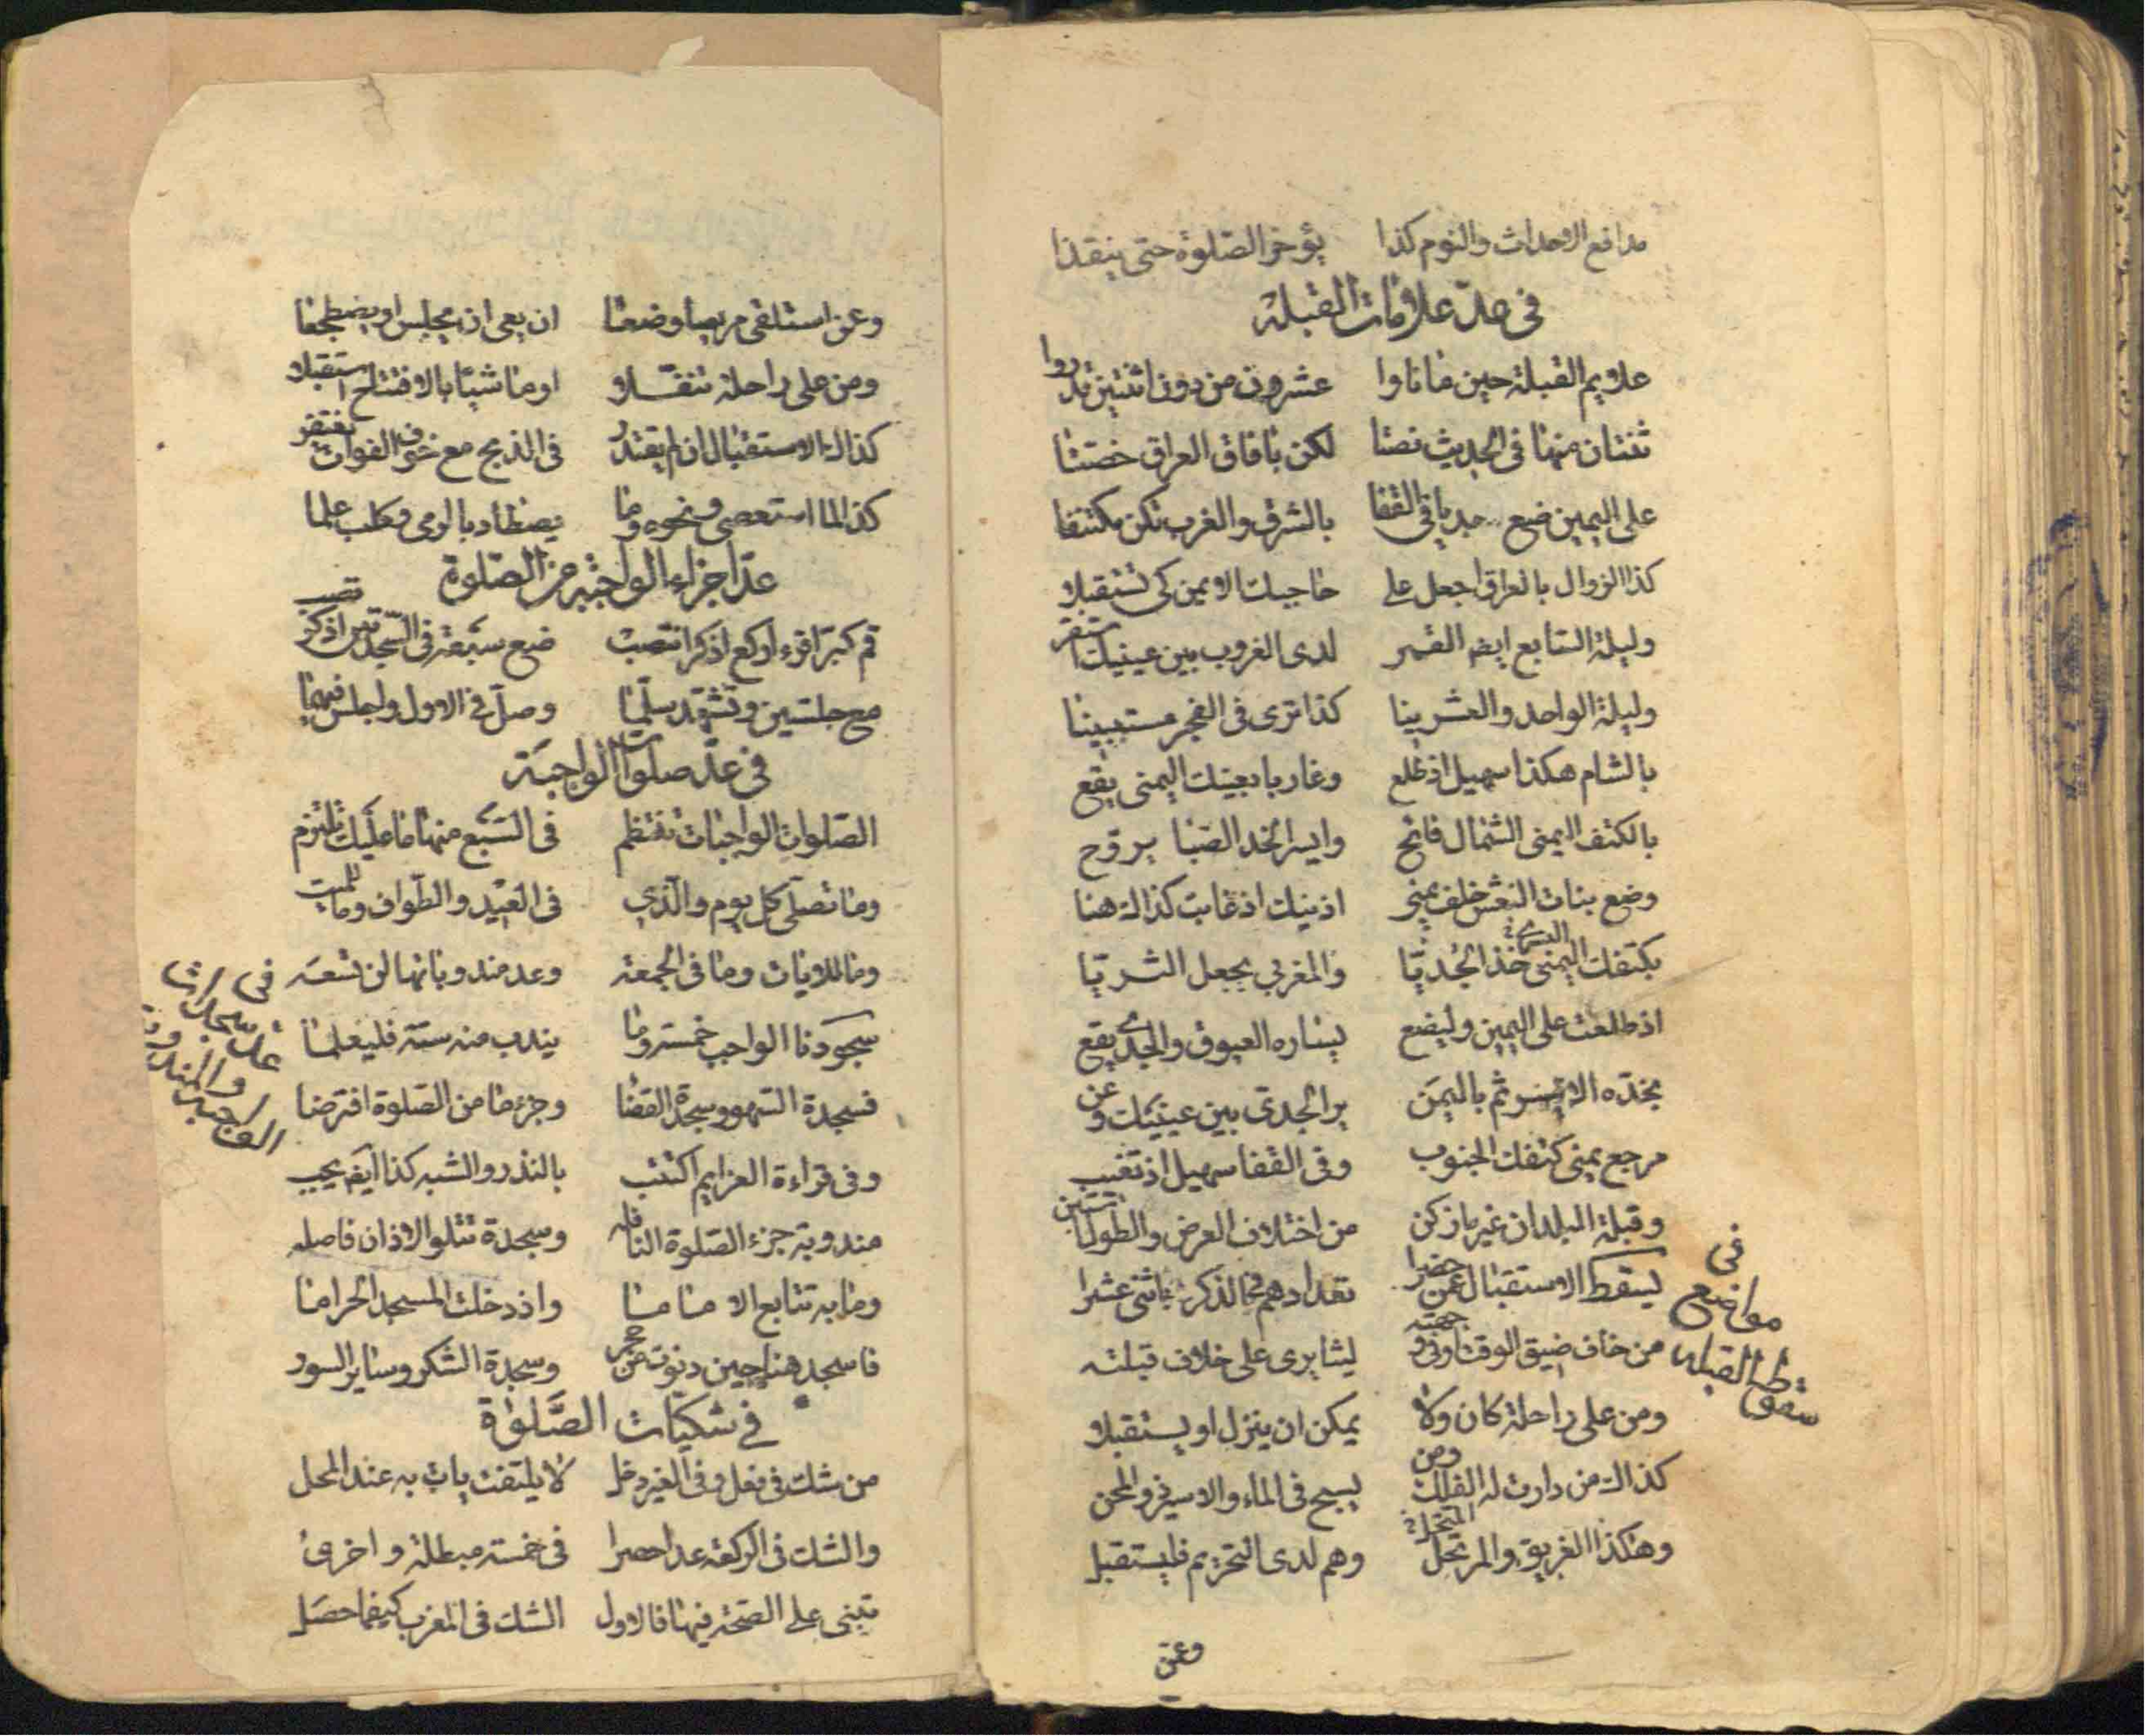 مدافع الاحداث والنوم كذا يؤخر الصلوة حتى ينقذا
في عدّ علامات القبلة
علايم القبلة حين ما نأوا عشرون من دون اثنتين قد رووا
ثنتان منها في الحديث نصتا لكن بافاق العراق خصتا
على اليمين ضع جديا في القفا بالشرق والغرب تكن مكتنفا
كذا الزوال بالعراق اجعل على حاجبك الايمن كي تستقبلا
وليلة السابع ايضا القمر لدى الغروب بين عينيك استقر
وليلة الواحد والعشرينا كذا ترى في الفجر مستبينا
بالشام هكذا سهيل اذ طلع وغاربا بعينك اليمنى يقع
بالكتف اليمنى الشمال فاتح وايسر الخد الصبا يروح
وضع بنات النعش خلف يمنى اذنيك اذ غابت كذاك هنا
بكتفك اليمنى خذ الجديّا والمغربي يجعل الثريّا
اليسرى
اذ طلعت على اليمين وليضع يساره العيوق والجدى يقع
بخدّه الايسر ثم باليمن ير الجدي بين عينيك وعن
مرجع يمنى كتفك الجنوب وفي القفا سهيل اذ تغيب
وقبلة البلدان غير ما زكن من اختلاف العرض والطول تستبن
في مواضع سقوط القبله
يسقط الاستقبال عمن حضرا تعدادهم في الذكر باثنى عشرا
من خاف ضيق الوقت او في جهته ليثا يرى على خلاف قبلته
ومن على راحلة كان ولا يمكن ان ينزل او يستقبلا
كذاك من دارت له الفلك ومن يسبح في الماء والاسير والمحن
وهكذا الغريق والمرتحل وهم لدى التحريم فليستقبل
وعن
وعن استلقى مريضا وضعا ان يعي ان يجلس او يضطجعا
ومن على راحلة تنفّلا او ماشيا بالافتتاح استقبلا
كذلك الاستقبال ان لم يقتدر في الذبح مع خوف الفوات يغتفر
كذا لما استعصى ونحوه وما يصطاد بالرمي وكلب علما
عدّ اجزاء الواجبة من الصلوة
قم كبر اقرء اركع اذكر انتصب ضع سبعة في السجدتين اذكر تصب
مع جلستين وتشهد سلّما وصل في الاول واجلس فيهما
في عدّ صلوات الواجبة
الصلوات الواجبات تنتظم في السبع منها ما عليك تلتزم
وما تصلى كل يوم والّذي في العيد والطواف وما للميت
وما للايات وما في الجمعة وعد مندوباتها لن تسعه
في عدّ سجدات الواجبة والمندوبة
سجودنا الواجب خمسة وما يندب منه ستة فليعلما
فسجدة السهو وسجدة القضا وجزء ما من الصلوة افترضا
وفي قراءة العزايم اكتتب بالنذر والشبه كذا ايضا يجب
مندوبة جزء الصلوة النافله وسجدة تتلو الاذان فاصله
وما به تتابع الاماما واذ دخلت المسجد الحراما
فاسجد هنا حين دنوت من حجر وسجدة الشكر وساير السور
في شكيّات الصّلوة
من شك في فعل وفي الغير دخل لا يلتفت يات به عند المحل
والشك في الركعة عدا حصرا في خمسة مبطلة واخرى
تبنى على الصحة فيها فالاول الشك في المغرب كيفما حصل